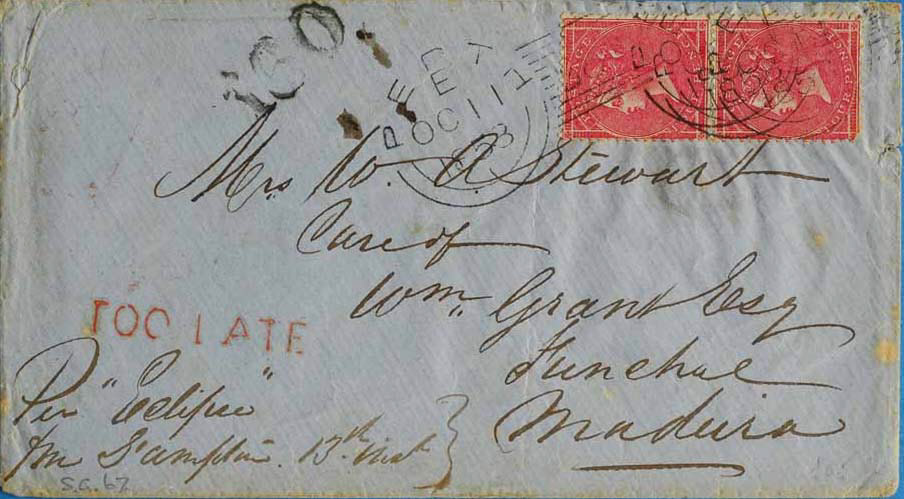 160
DEPT
OC 11
Mrs W. A Stewart
Care of
Wm. Grant Esq
Funchal
Madeira
TOO LATE
Per "Eclipse"
fm S'ampton. 13th inst
S.G. 62